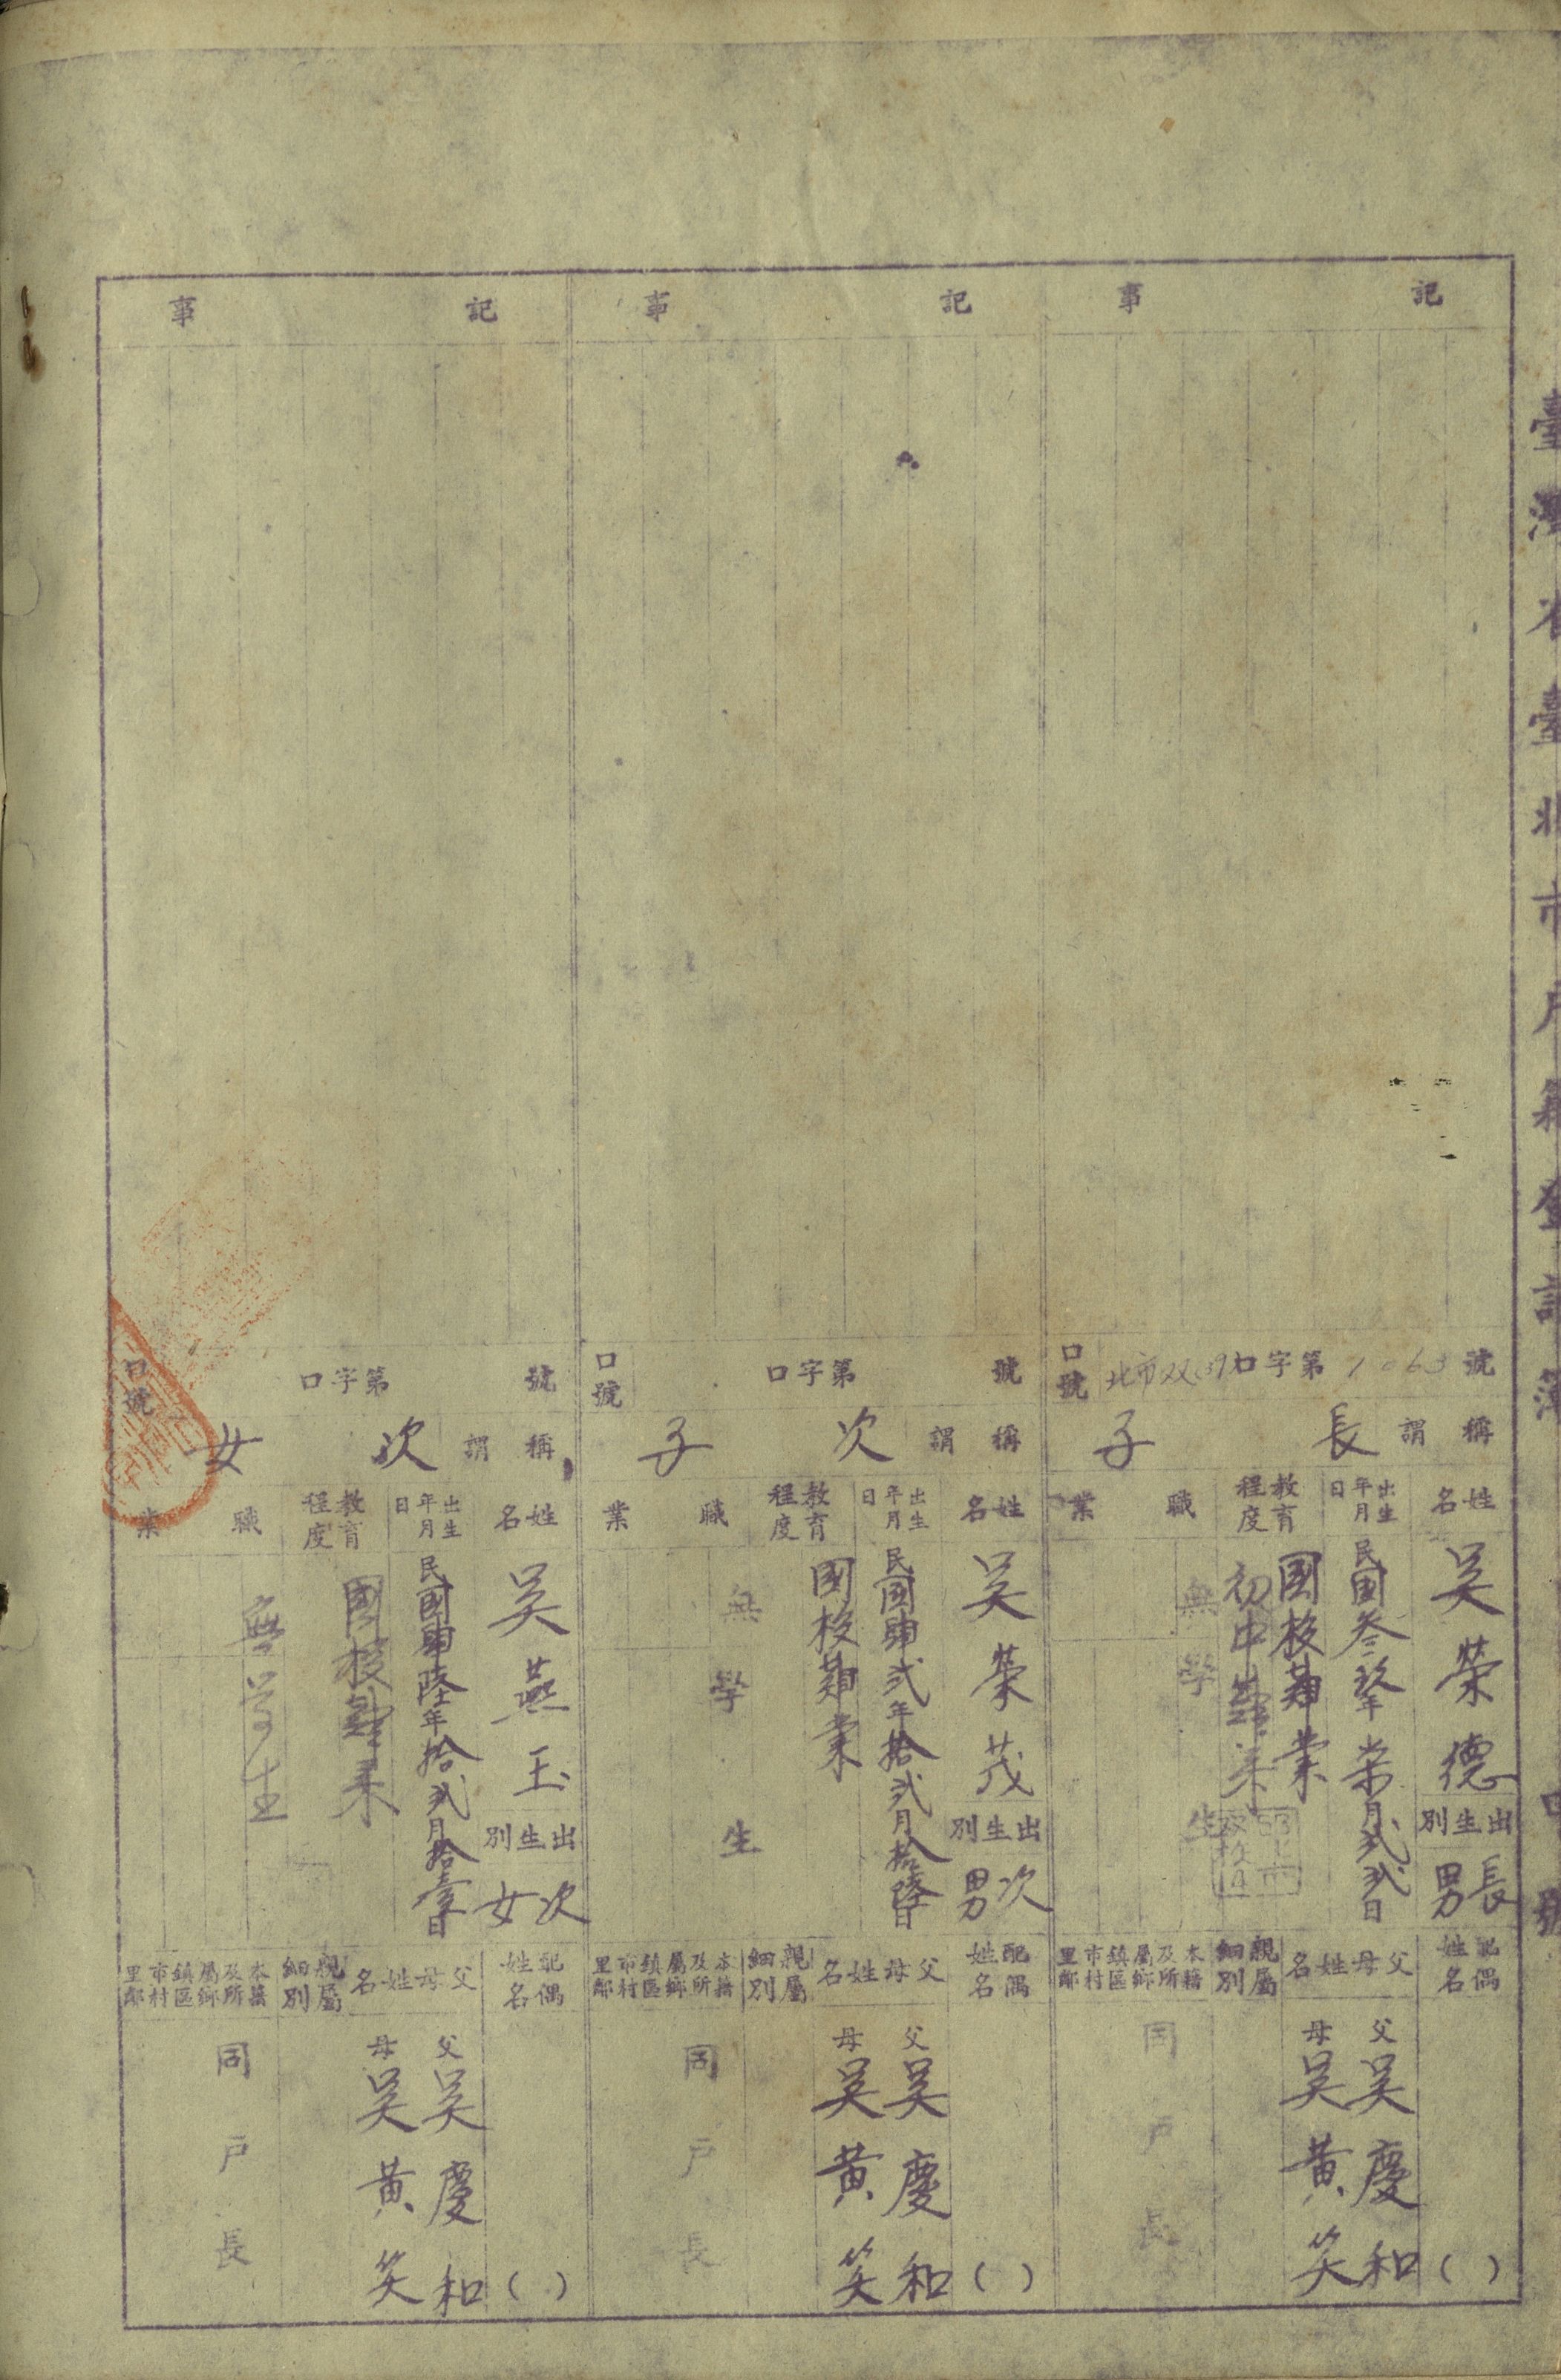 臺灣省臺北市戶籍登記簿
口號
記事
口號
北市双(39)口字第1063號
稱謂
長子
姓名
吳榮德
出生別
長男
出生年月日
民國叁玖年柒月弍弍日
教育程度
國校肄業
初中肄業
職業
無
學生
配偶姓名
( )
父母姓名
父
吳慶和
母
吳黃笑
親屬細別
本籍及所屬鄉鎮區市村里鄰
同戶長
記事
口號
口字第 號
稱謂
次子
姓名
吳榮茂
出生別
次男
出生年月日
民國肆弍年拾弍月拾陸日
教育程度
國校肄業
職業
無
學生
配偶姓名
( )
父母姓名
父
吳慶和
母
吳黃笑
親屬細別
本籍及所屬鄉鎮區市村里鄰
同戶長
記事
口號
口字第 號
稱謂
次女
姓名
吳燕玉
出生別
次女
出生年月日
民國肆陸年拾弍月拾壹日
教育程度
國校肄業
職業
無
学生
配偶姓名
( )
父母姓名
父
吳慶和
母
吳黃笑
親屬細別
本籍及所屬鄉鎮區市村里鄰
同戶長